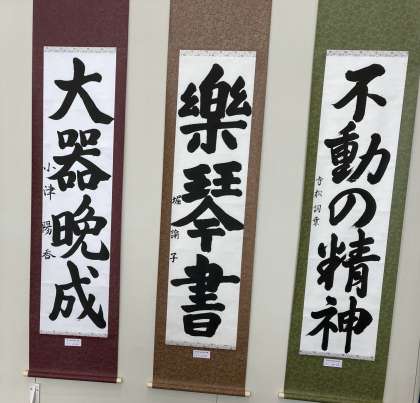 不動の精神
樂琴書
堀諭子
大器晩成
小津陽香